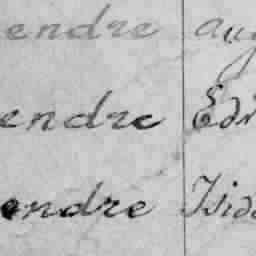 endre aug
endre Edr
endre Isid